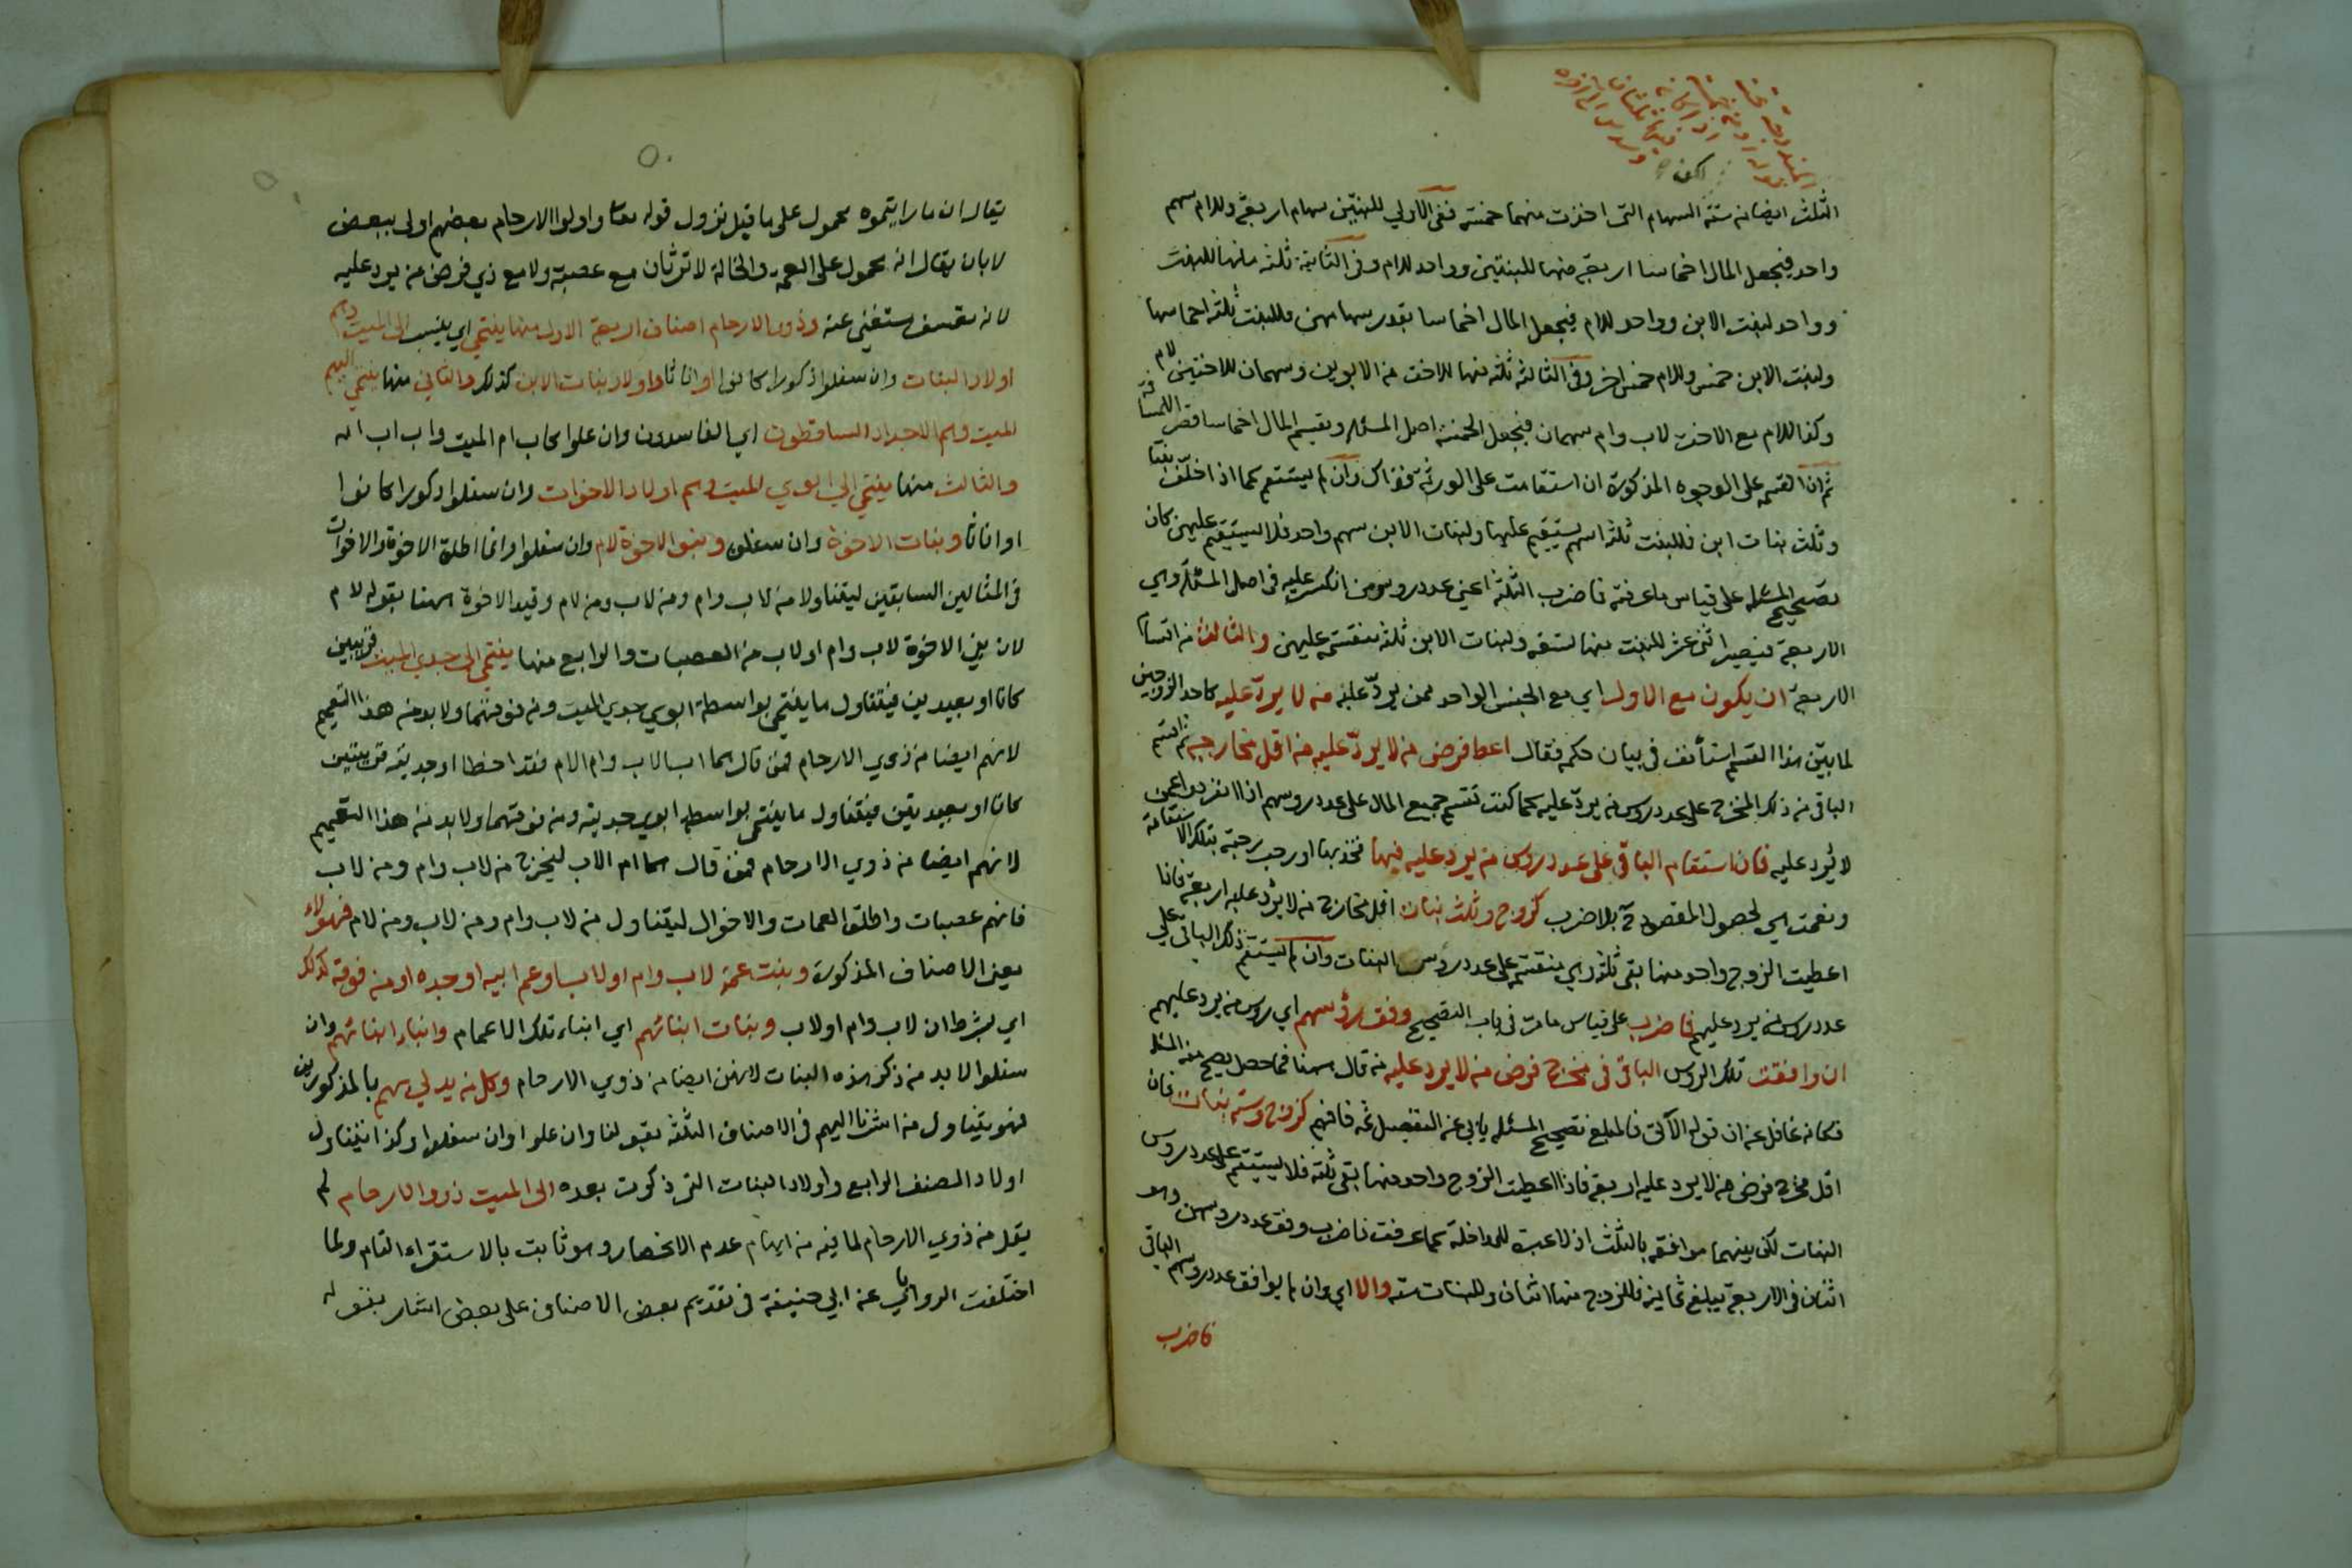 الثلث ايضا من ستة السهام التي اخذت منهما خمسة ففي الاولي للبنتين سهام اربعة وللام سهم
واحد فيجعل المال اخماسا اربعة منها للبنتين وواحد للام وفي الثانية ثلثة منها للبنت
وواحد لبنت الابن وواحد للام فيجعل المال اخماسا بقدر سهامهن فللبنت ثلثة اخماسها
ولبنت الابن خمس وللام خمس اخر وفي الثالثة ثلثة منها للاخت من الابوين وسهمان للاختين لام
وكذا للام مع الاخت لاب وام سهمان فيجعل الخمسة اصل المسئلة ويقسم المال اخماسا
ثم ان القسمة على الوجوه المذكورة ان استقامت على الورثة فذاك وان لم يستقم كما اذا خلف بنتا
وثلث بنات ابن فللبنت ثلثة اسهم يستقيم عليها ولبنات الابن سهم واحد فلا يستقيم عليهن كان
تصحيح المسئلة على قياس ما عرفته فاضرب الثلثة اعني عدد رؤس من انكسر عليه في اصل المسئلة وهي
الاربعة فيصير اثني عشر للبنت منها تسعة ولبنات الابن ثلثة منقسمة عليهن والثالث من اقسام
الاربعة ان يكون مع الاول اي مع الجنس الواحد ممن يرد عليه من لا يرد عليه كاحد الزوجين
لما بين هذا القسم استأنف في بيان حكمه فقال اعط فرض من لا يرد عليه من اقل مخارجه ثم اقسم
الباقي من ذلك المخرج على عدد رؤس من يرد عليه كما كنت تقسم جميع المال على عدد رؤسهم اذا انفردوا عمن
لا يرد عليه فان استقام الباقي على عدد رؤس من يرد عليه فبها فخذ بها
ونعمت هي لحصول المقصود بلا ضرب كزوج وثلث بنات اقل مخارج من لا يرد عليه اربعة فاذا
اعطيت الزوج واحد منها بقي ثلثة وهي منقسمة على عدد رؤس البنات وان لم يستقم ذلك الباقي علي
عدد رؤس من يرد عليهم فاضرب على قياس ما مر في باب التصحيح وفق رؤسهم اي رؤس من يرد عليهم
ان وافقت تلك الرؤس الباقي في مخرج فرض من لا يرد عليه من قال ههنا فما حصل يصح منه المسئلة
فكانه غافل عن ان قوله الآتي فالمبلغ تصحيح المسئلة يابى عن التفصيل ثمه فافهم كزوج وستة بنات فان
اقل مخرج فرض من لا يرد عليه اربعة فاذا اعطيت الزوج واحد منها بقي ثلثة فلا يستقيم على عدد رؤس
البنات لكن بينهما موافقة بالثلث اذ لا عبرة للمداخلة كما عرفت فاضرب وفق عدد رؤسهن وهو
اثنان في الاربعة يبلغ ثمانية فللزوج منها اثنان وللبنات ستة والا اي وان لم يوافق عدد رؤسهم الباقي
فاضرب
يقال ان ما رايتموه محمول على ما قبل نزول قوله تعالى واولوا الارحام بعضهم اولى ببعض
لا بان يقال انه محمول على العمة والخالة لا ترثان مع عصبة ولا مع ذي فرض من يرد عليه
لانه تعسف مستغني عنه وذوو الارحام اصناف اربعة الاول منها ينتمي اي ينسب الى الميت وهم
اولاد البنات وان سفلوا ذكورا كانوا او اناثا واولاد بنات الابن كذلك والثاني منها ينتمي اليهم
الميت وهم الاجداد الساقطون اي الفاسدون وان علوا كاب ام الميت واب اب امه
والثالث منها ينتمي الى ابوي الميت وهم اولاد الاخوات وان سفلوا ذكورا كانوا
او اناثا وبنات الاخوة وان سفلن وبنو الاخوة لام وان سفلوا وانما اطلق الاخوة والاخوات
في المثالين السابقين ليتناولا من لاب وام ومن لاب ومن لام وقيد الاخوة ههنا بقوله لام
لان بني الاخوة لاب وام او لاب من العصبات والرابع منها ينتمي الى جدي الميت قريبين
كانا او بعيدين فيتناول ما ينتمي بواسطة ابوي جدي الميت ومن فوقهما ولا بد من هذا التعميم
لانهم ايضا من ذوي الارحام فمن قال هما اب الاب وام الام فقد اخطا او جديته قريبتين
كانتا او بعيدتين فيتناول ما ينتمي بواسطة ابوي جديته ومن فوقهما ولا بد من هذا التعميم
لانهم ايضا من ذوي الارحام فمن قال هما ام الاب ليخرج من لاب وام ومن لاب
فانهم عصبات واطلق العمات والاخوال ليتناول من لاب وام ومن لاب ومن لام فهؤلاء
يعني الاصناف المذكورة وبنت عمه لاب وام او لاب وعم ابيه او جده او من فوقه كذلك
اي بشرط ان لاب وام او لاب وبنات ابنائهم اي ابناء تلك الاعمام وابناء ابنائهم وان
سفلوا لا بد من ذكر هذه البنات لانهن ايضا من ذوي الارحام وكل من يدلي بهم بالمذكورين
فهو يتناول من اشرنا اليهم في الاصناف الثلثة بقولنا وان علوا وان سفلوا وكذا يتناول
اولاد الصنف الرابع واولاد البنات التي ذكرت بعده الى الميت ذوو الارحام لم
يقل من ذوي الارحام لما فيه من ايهام عدم الانحصار وهو ثابت بالاستقراء التام ولما
اختلفت الروايات عن ابي حنيفة في تقديم بعض الاصناف على بعض اشار بقوله